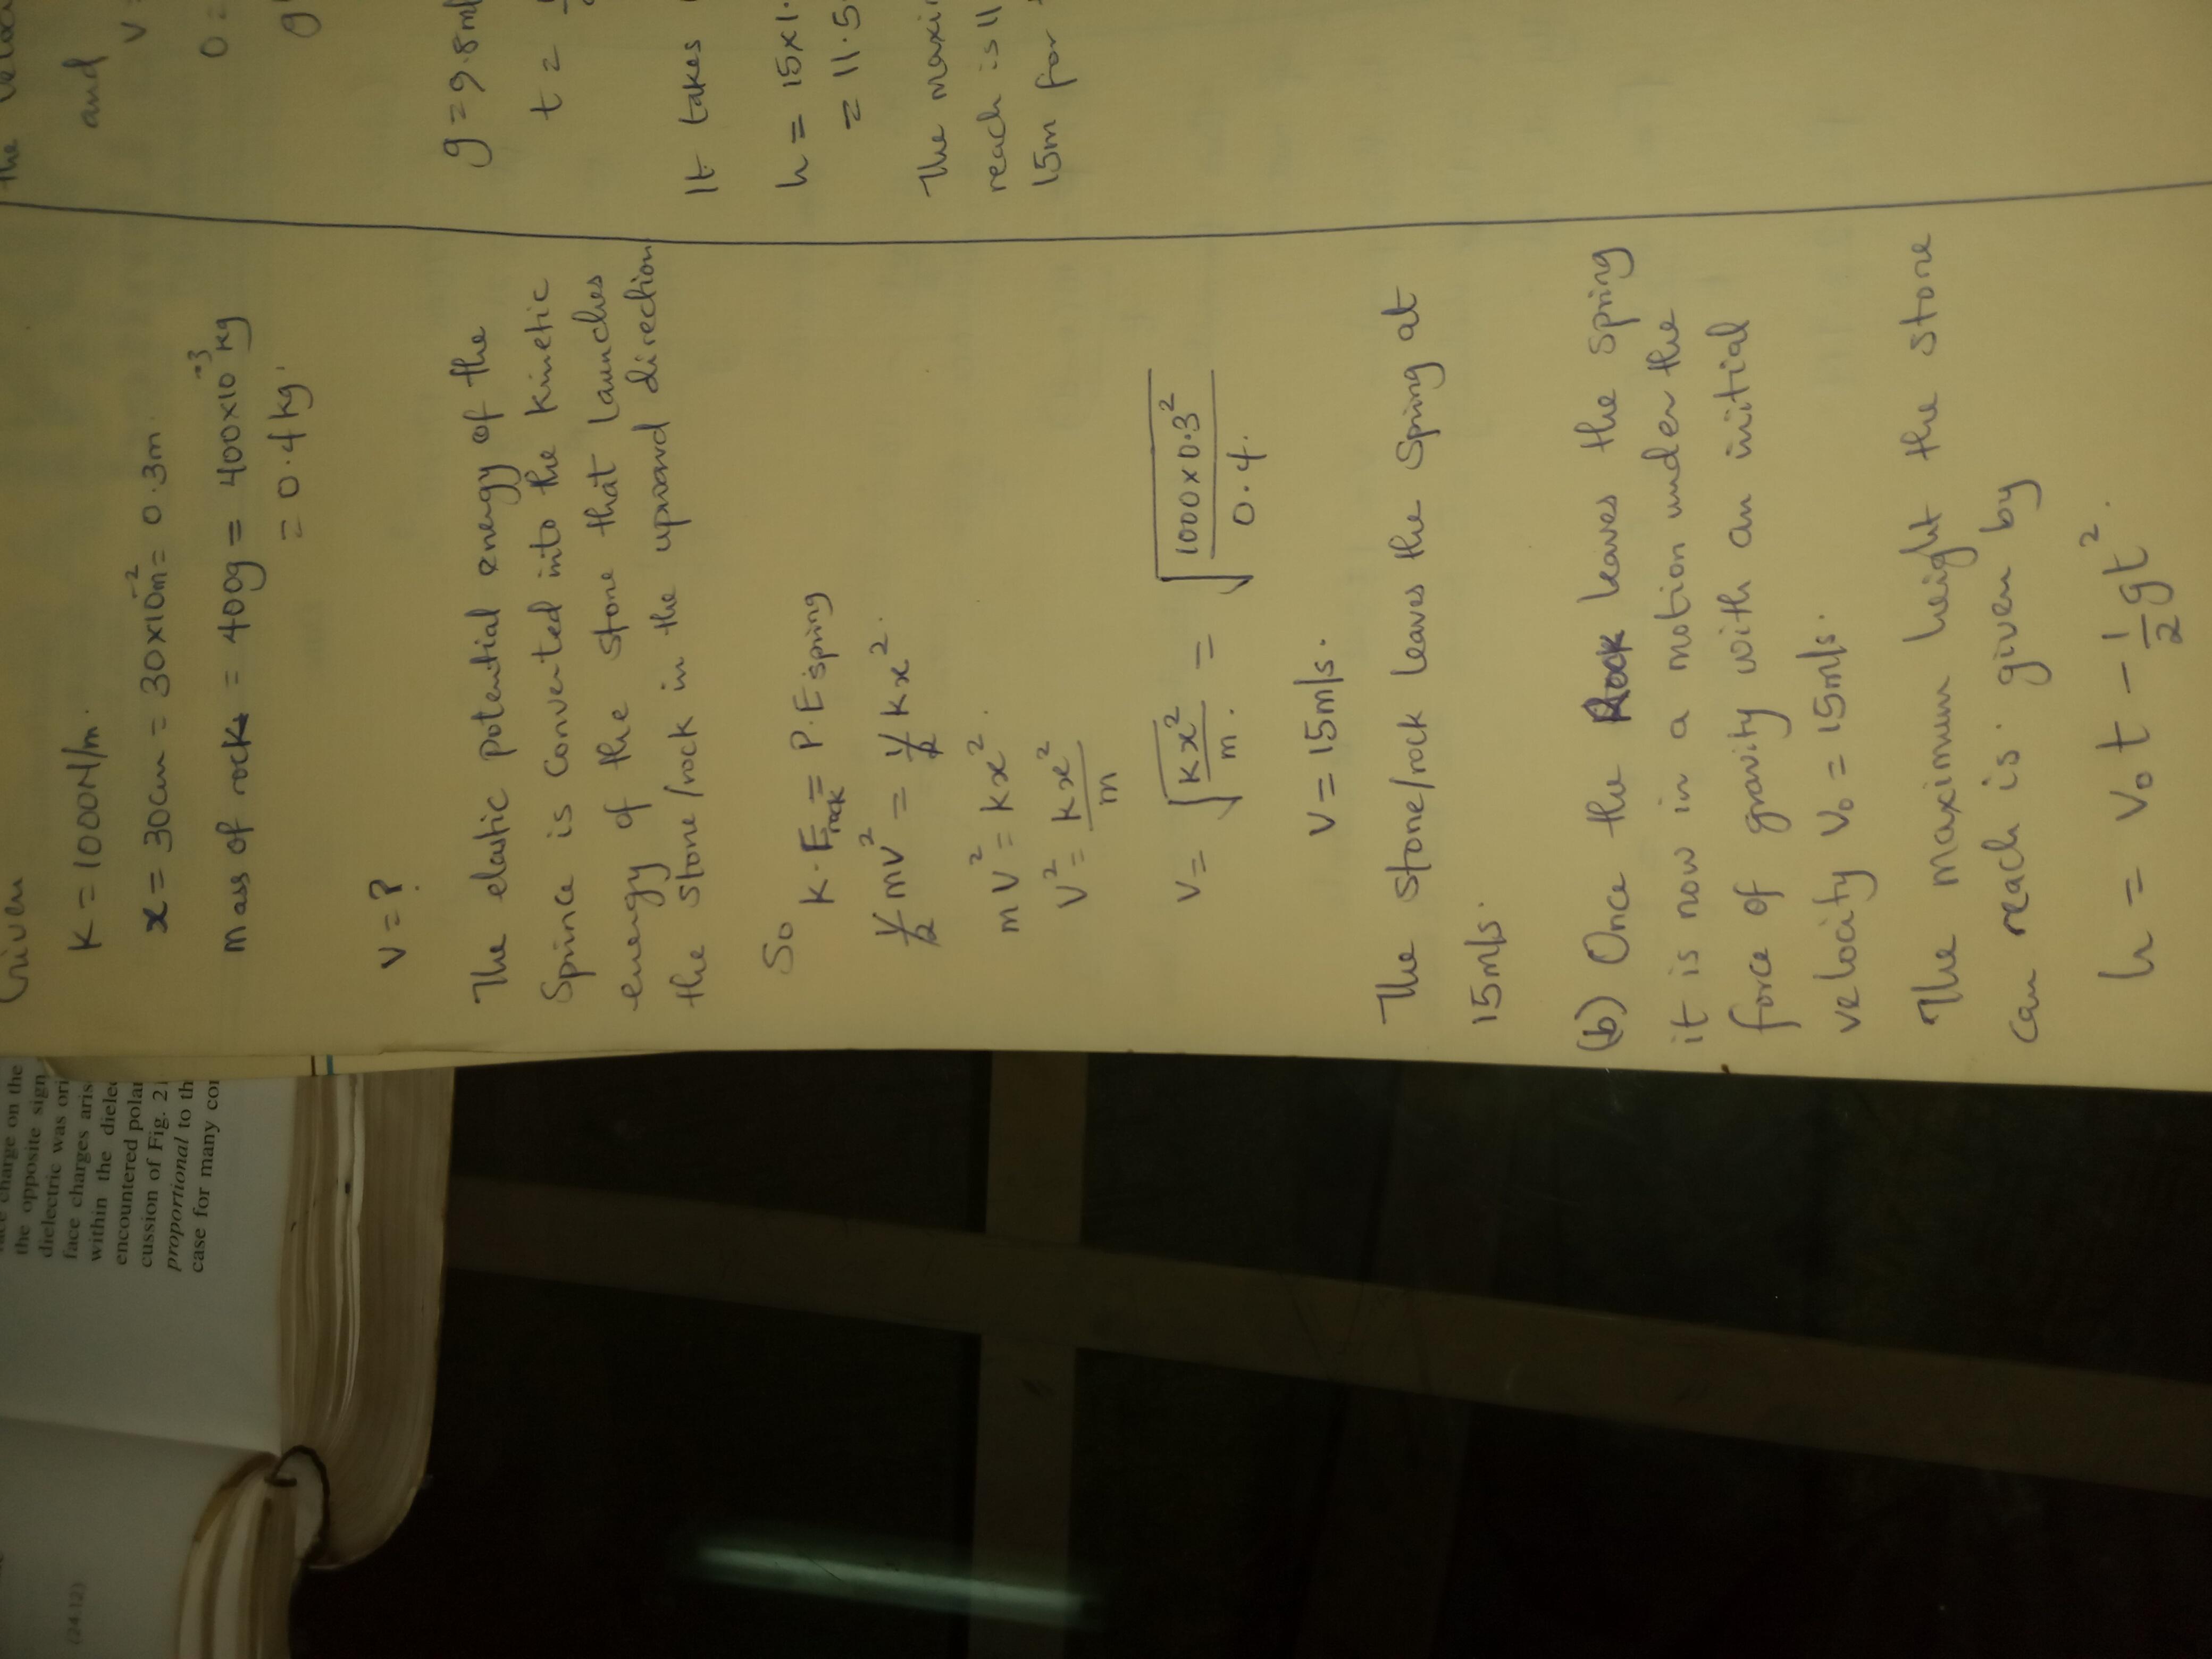 Given
K = 1000N/m.
x = 30cm = 30x10⁻²m = 0.3m.
mass of rock = 400g = 400x10⁻³kg
= 0.4kg.
V = ?
The elastic potential energy of the
Sprince is converted into the kinetic
energy of the stone that launches
the stone/rock in the upward direction
So
K.E rock = P.E spring
½ mv² = ½ kx².
mv² = kx².
V² = kx²/m
V = √(kx²/m.) = √(1000x0.3²/0.4.)
V = 15m/s.
The stone/rock leaves the spring at
15m/s.
(b) Once the Rock leaves the spring
it is now in a motion under the
force of gravity with an initial
velocity V₀ = 15m/s.
The maximum height the stone
can reach is given by
h = V₀t - ½gt².
the
and
V =
0 =
g
g = 9.8m/
t =
It takes
h = 15x1.
= 11.5
The maxi
reach is 11
15m for
charge on the
the opposite sign
dielectric was ori
face charges aris
within the dielec
encountered polar
cussion of Fig. 2
proportional to th
case for many con
(24-12)